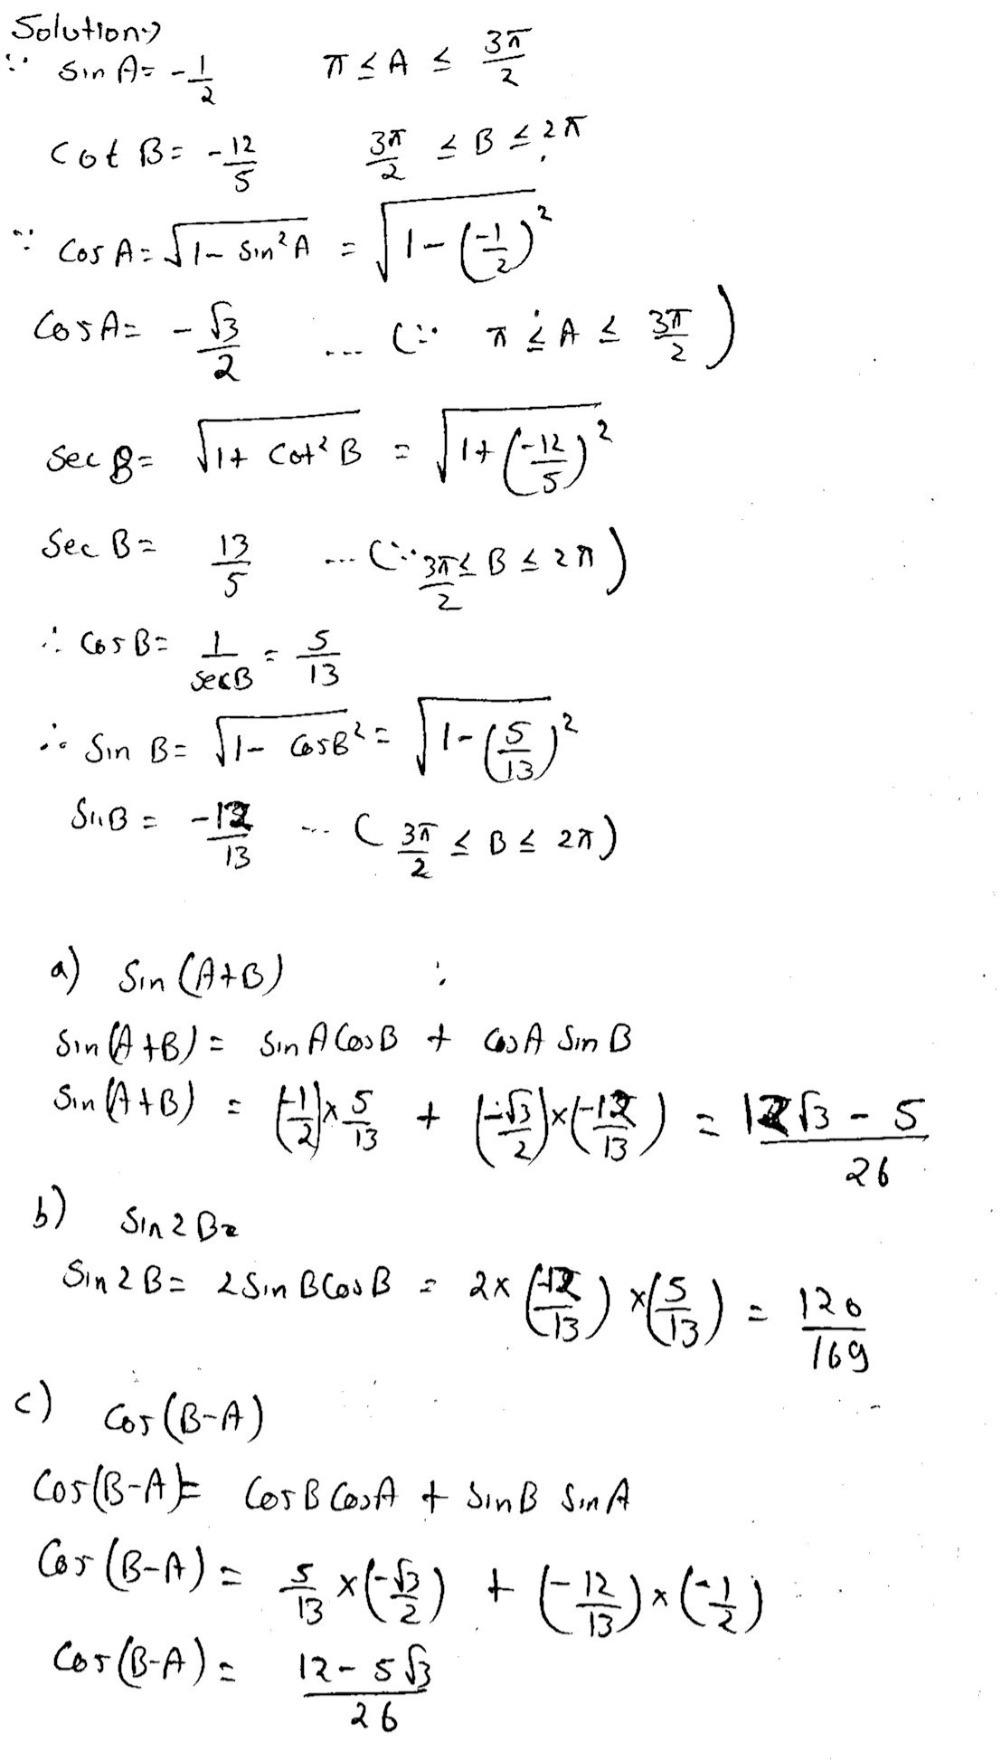 Solution:→
∵ sin A = -1/2 π ≤ A ≤ 3π/2
Cot B = -12/5 3π/2 ≤ B ≤ 2π
∵ Cos A = √(1 - Sin²A) = √(1 - (-1/2)²)
Cos A = -√3/2 ... (∵ π ≤ A ≤ 3π/2)
Sec B = √(1 + Cot²B) = √(1 + (-12/5)²)
Sec B = 13/5 ... (∵ 3π/2 ≤ B ≤ 2π)
∴ Cos B = 1/secB = 5/13
∴ Sin B = √(1 - CosB²) = √(1 - (5/13)²)
SinB = -12/13 ... (3π/2 ≤ B ≤ 2π)
a) Sin (A+B)
Sin(A+B) = Sin A Cos B + Cos A Sin B
Sin(A+B) = (-1/2) × 5/13 + (-√3/2) × (-12/13) = (12√3 - 5)/26
b) Sin 2B =
Sin 2B = 2 Sin B Cos B = 2 × (-12/13) × (5/13) = 120/169
c) Cos (B-A)
Cos(B-A) = Cos B Cos A + Sin B Sin A
Cos (B-A) = 5/13 × (-√3/2) + (-12/13) × (-1/2)
Cos (B-A) = (12 - 5√3)/26